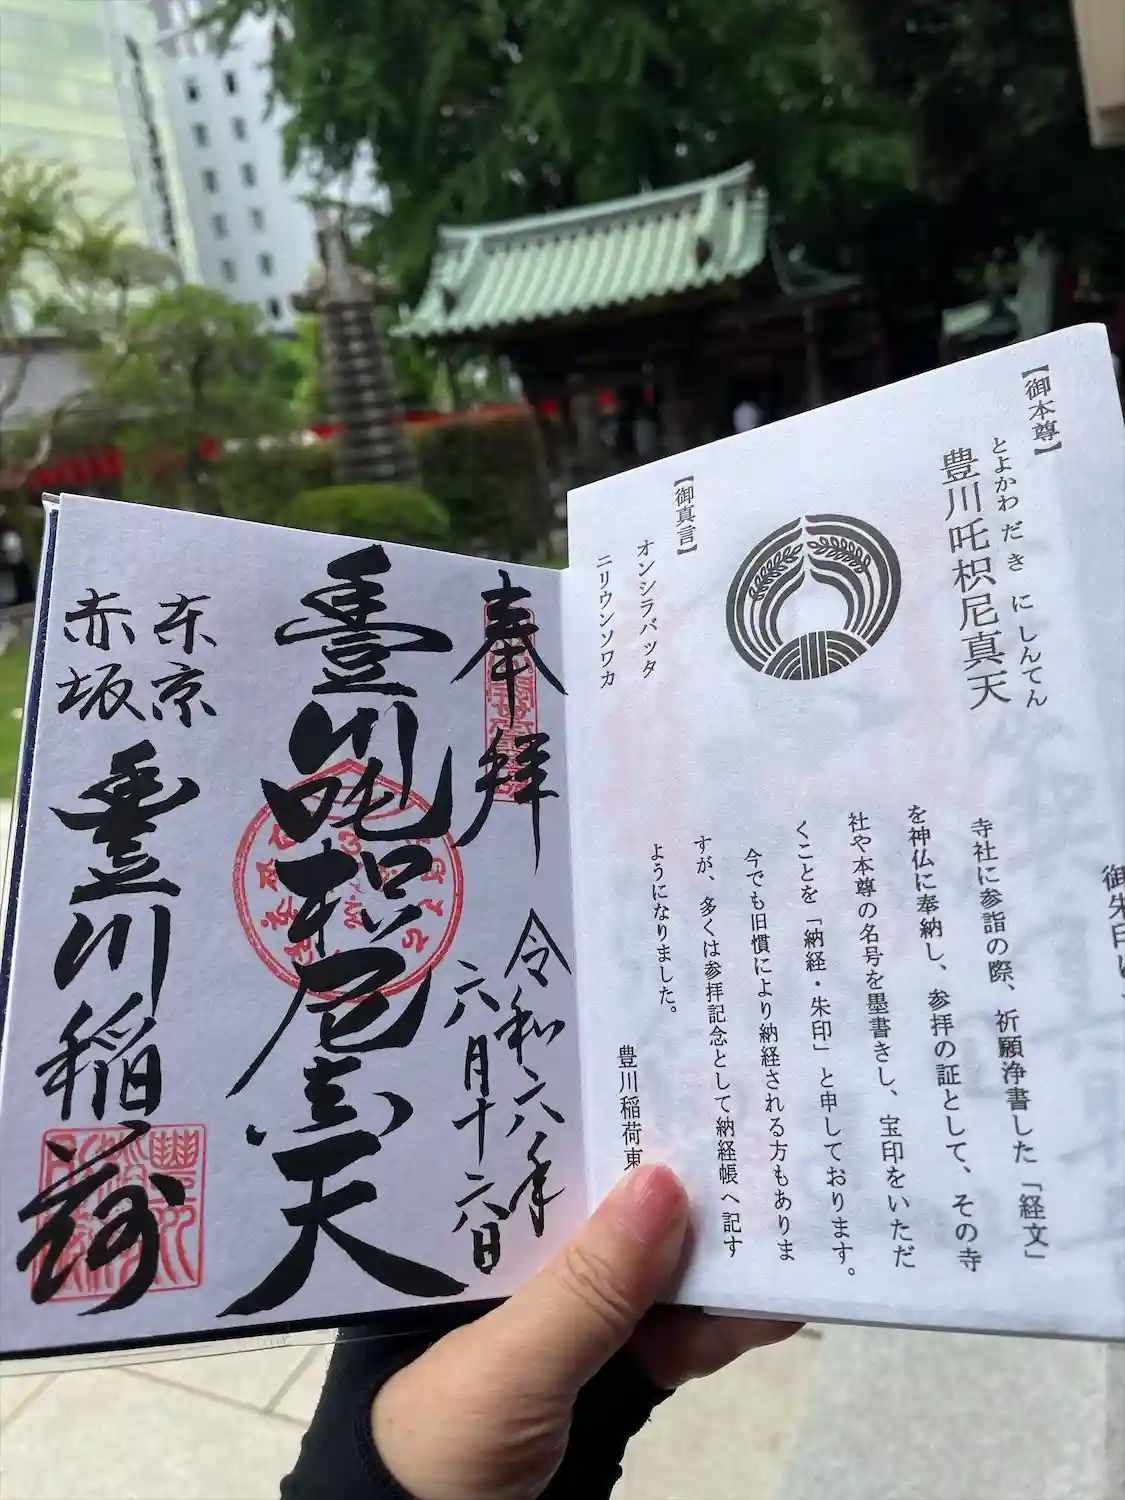 御朱印は、
【御本尊】
とよかわ だ き に しんてん
豊川吒枳尼真天
寺社に参詣の際、祈願浄書した「経文」
を神仏に奉納し、参拝の証として、その寺
社や本尊の名号を墨書きし、宝印をいただ
くことを「納経・朱印」と申しております。
今でも旧慣により納経される方もありま
すが、多くは参拝記念として納経帳へ記す
ようになりました。
豊川稲荷東
【御真言】
オンシラバッタ
ニリウンソワカ
奉拝
令和六年
六月十六日
豊川吒枳尼真天
東京
赤坂
豊川稲荷